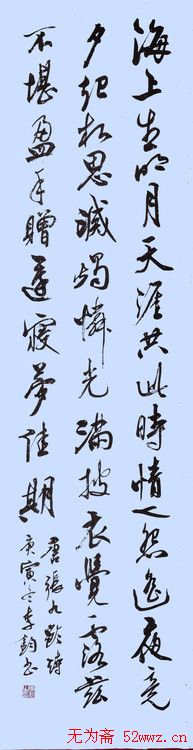 海上生明月天涯共此時情人怨遙夜竟
夕起相思滅燭憐光滿披衣覺露滋
不堪盈手贈還寢夢佳期
唐張九齡詩
庚寅冬李鈞書
无为斋 52wwz.cn